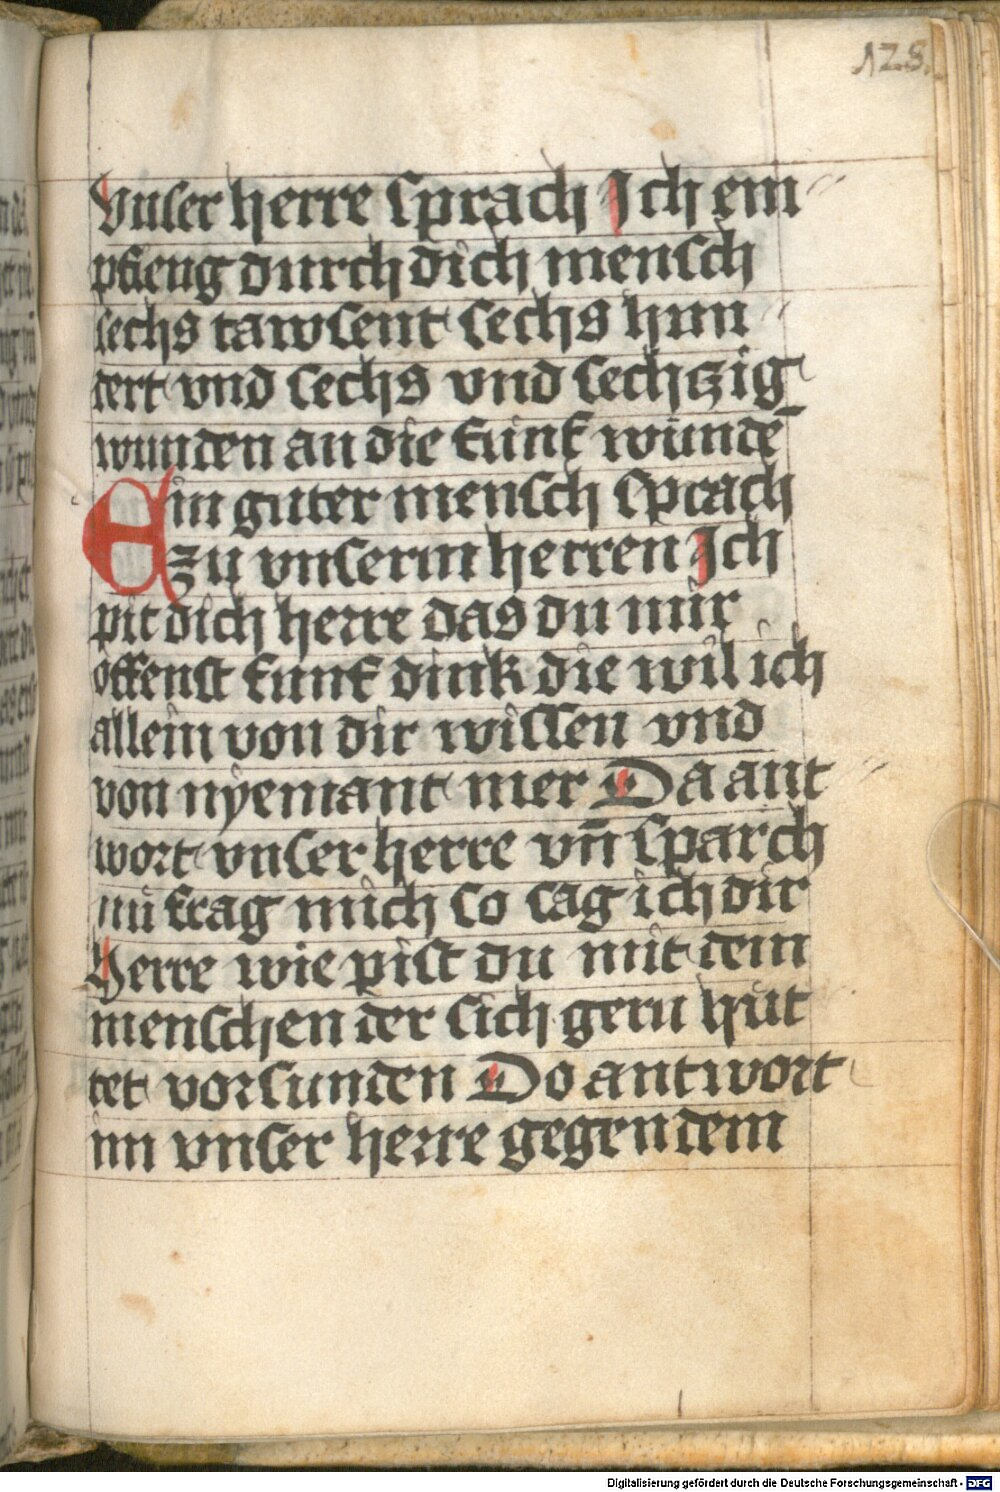 128.
Vnser herre sprach Ich em〃
pfieng durch dich mensch
sechs tawsent sechs hun〃
dert vnd sechs vnd sechczig
wunden an die funf wundē
Ein guter mensch sprach
zu vnserm herren Ich
pit dich herre das du mir
offenst funf dink die wil ich
allein von dir wissen vnd
von nyemant mer Da ant〃
wort vnser herre vn̄ sparch
nu frag mich so sag ich dir
Herre wie pist du mit dem
menschen der sich gern hüt
tet vor sunden Do antwort
im vnser herre gegen dem
Digitalisierung gefördert durch die Deutsche Forschungsgemeinschaft - DFG